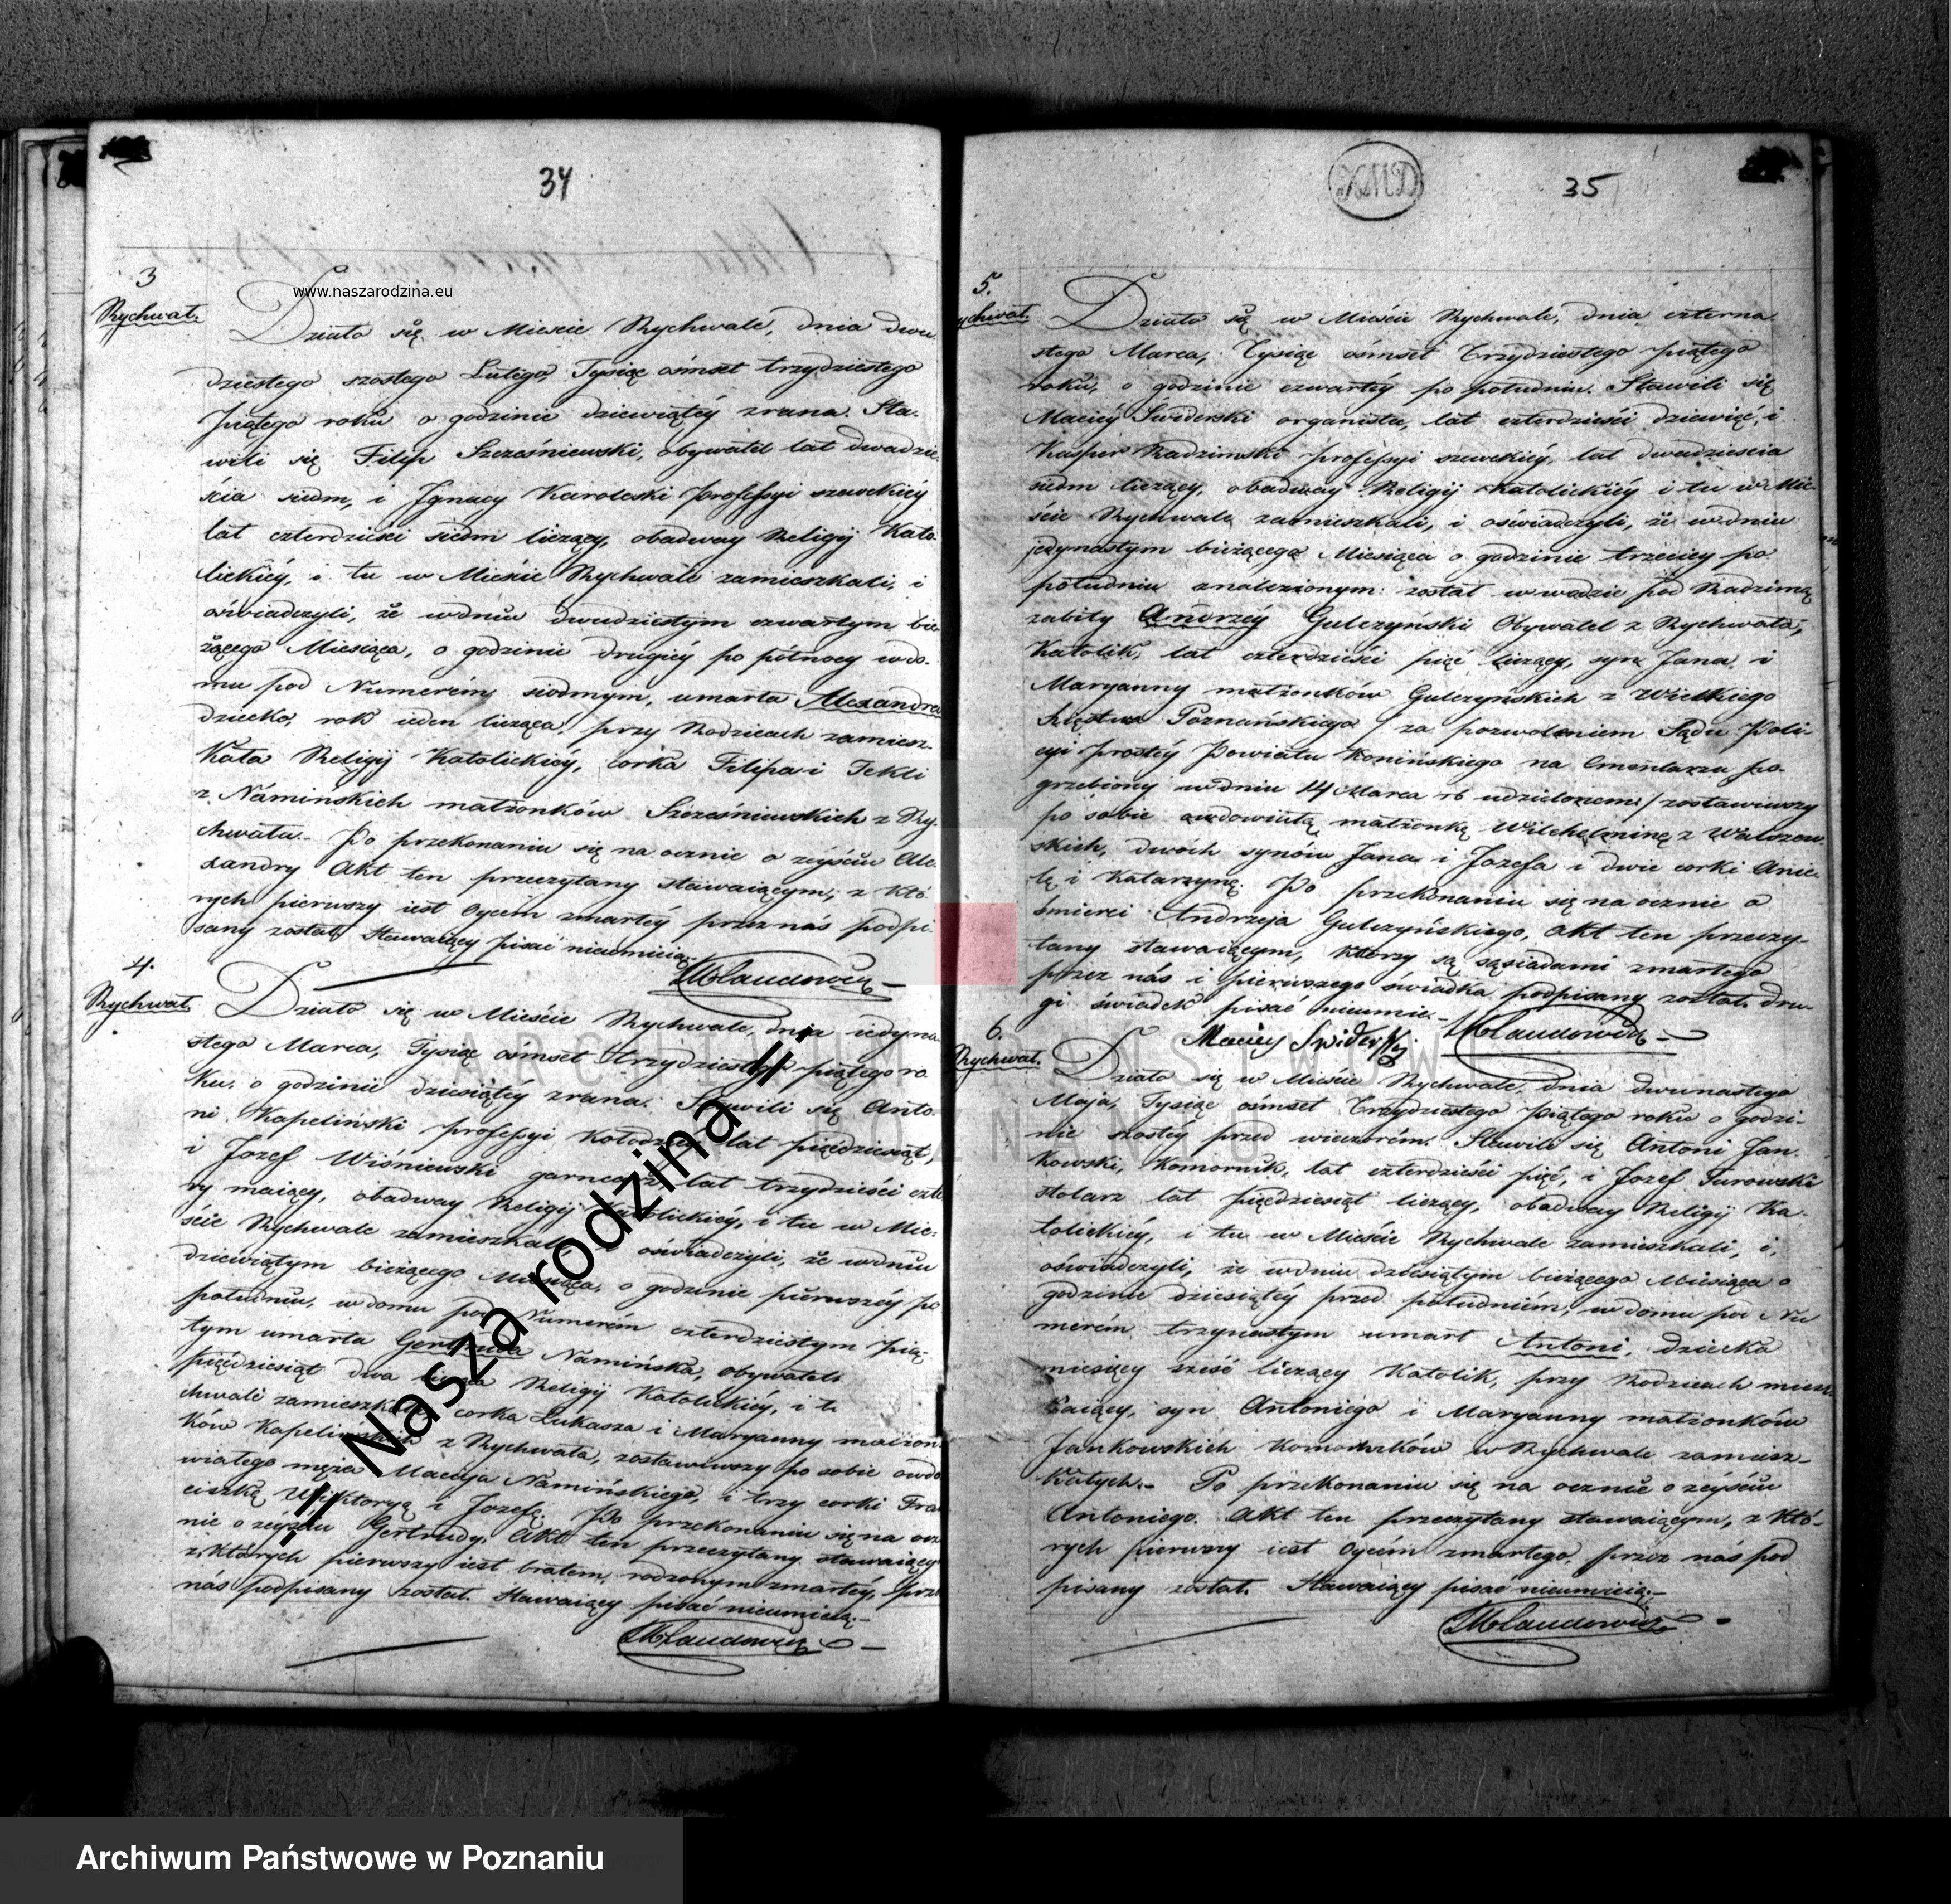 34
3
Rychwał.
www.naszarodzina.eu
Działo się w Mieście Rychwale, dnia dwu
dziestego szóstego Lutego, Tysiąc ośmset trzydziestego
piątego roku o godzinie dziewiątey zrana. Sta-
wili się Filip Szcześniewski, obywatel lat dwadzie-
ścia siedm, i Jgnacy Karolcski professyi szewckiéy
lat czterdzieści siedm liczący, obadway Religij Kato-
lickiéy, i tu w Mieście Rychwale zamieszkali, i
oświadczyli, że wdniu dwudziestym czwartym bie-
żącego Miesiąca, o godzinie drugiéy po północy wdo-
mu pod Numerém siodmym, umarła Alexandra
dziecko, rok ieden licząca, przy Rodzicach zamiesz-
kała Religij Katolickiéy, córka Filipa i Tekli
z Námińskich małżonków Szcześniewskich z Ry-
chwała. Po przekonaniu się na ocznie o zéyściu Ale-
xandry Akt ten przeczytany stawaiącym, z któ-
rych pierwszy iest Oycem zmarłéy przez nás podpi-
sany został. Stawaiący pisać nieumieią.
MLaudowicz
4.
Rychwał
Działo się w Mieście Rychwale, dnia iedyna-
stego Marca, Tysiąc ośmset trzydziestego piątego ro
ku, o godzinie dziesiątéy zrana. Stawili się Anto-
ni Kapeliński professyi Kołodziey lat pięćdziesiąt,
i Jozef Wiśniewski garncarz lat trzydzieści czte
ry maiący, obadway Religij Katolickiéy, i tu w Mie-
ście Rychwale zamieszkali oświadczyli, że wdniu
dziewiątym bieżącego Miesiąca, o godzinie pierwszéy po
południu, wdomu pod Numerém czterdziestym pią-
tym umarła Gertruda Namińska, obywatelk
pięćdziesiąt dwa licząca Religij Katolickiéy, i t
chwale zamieszkała corka Łukasza i Maryanny małżon
ków Kapelińskich z Rychwała, zostawiwszy po sobie owdo
wiałego męża Macieja Namińskiego, i trzy corki Fra
ciszkę Wiktoryą i Jozefę. Po przekonaniu się na ocz
nie o zéyściu Gertrudy, Akt ten przeczytany stawaiący
z których pierwszy iest bratem rodzonym zmarłéy, prze
nás podpisany został. Stawaiący pisać nieumieią.
MLaudowicz
35
5.
ychwał.
Działo się w Mieście Rychwale, dnia czterna
stego Marca, Tysiąc ośmset Trzydziestego piątego
roku, o godzinie czwartéy po południu. Stawili się
Maciéy Świderski organista, lat czterdzieści dziewięć, i
Kasper Radzimski professyi szewckiéy, lat dwadzieścia
siedm liczący, obadway Religij Katolickiéy i tu w Mie-
ście Rychwale zamieszkali, i oświadczyli, że wdniu
jedynastym bieżącego Miesiąca o godzinie trzeciey po
południu znalezionym został w wodzie pod Radzimą
zabity Andrzéy Gulczyński Obywatel z Rychwała,
Katolik, lat czterdzieści pięć liczący, syn Jana i
Maryanny małżonków Gulczyńskich z Wielkiego
Księstwa Poznańskiego / za pozwoleniem Sądu Poli-
cyi prostéy Powiatu Konińskiego na Cmentarzu po-
grzebiony wdniu 14 Marca rb udzielonem / zostawiwszy
po sobie owdowiałą małżonkę Wilchelminę z Walszew-
skich, dwóch synów Jana i Jozefa i dwie corki Anie-
lę i Katarzynę. Po przekonaniu się na ocznie o
śmierci Andrzeja Gulczyńskiego, Akt ten przeczy-
tany stawaiącym, którzy są sąsiadami zmarłego
przez nás i pierwszego świadka podpisany został, dru-
gi świadek pisać nieumie.
Maciey Swiderski MLaudowicz
6.
Rychwał.
Działo się w Mieście Rychwale, dnia dwunastego
Maja, Tysiąc ośmset Trzydziestego piątego roku o godzi-
nie szostéy przed wieczorém. Stawili się Antoni Jan-
kowski, Komornik, lat czterdzieści pięć, i Jozef Turowski
stolarz lat pięćdziesiąt liczący, obadway Religij Ka-
tolickiéy, i tu w Mieście Rychwale zamieszkali, i,
oświadczyli, iż wdniu dziesiątym bieżącego Miesiąca o
godzinie dziesiątéy przed południém, w domu pod Nu
merém trzynastym umarł Antoni, dziecko
miesięcy sześć liczący Katolik, przy Rodzicach miesz-
kaiący, syn Antoniego i Maryanny małżonków
Jankowskich Komorników w Rychwale zamiesz-
kałych. Po przekonaniu się na ocznie o zéyściu
Antoniego. Akt ten przeczytany stawaiącym, z któ-
rych pierwszy iest Oycem zmarłego, przez nás pod
pisany został. Stawaiący pisać nieumieią.
MLaudowicz
-!! Nasza rodzina !!-
ARCHIWUM PAŃSTWOWE
W POZNANIU
Archiwum Państwowe w Poznaniu